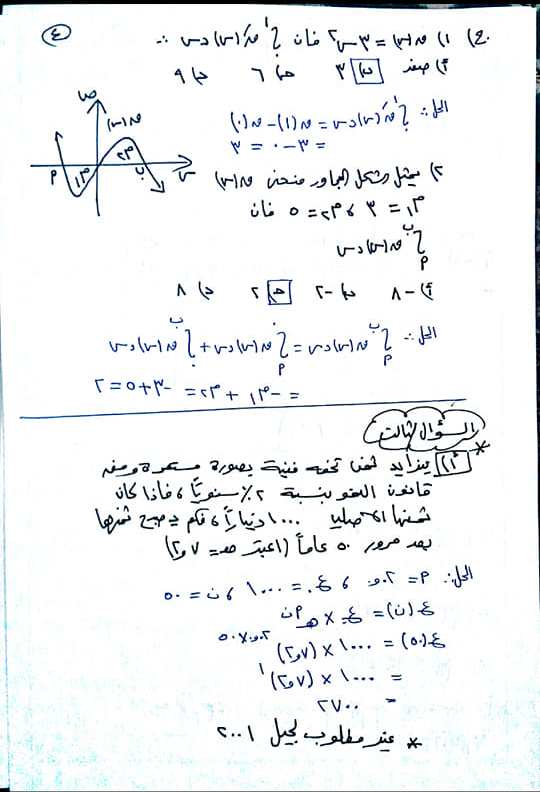 ٤
ع) ١) ق(س) = ٣س٢ فان ∫ قَ(س) دس ::
أ) صفر ب) ٣ ج) ٦ د) ٩
الحل :: ∫ قَ(س) دس = ق(١) - ق(٠)
= ٣ - ٠ = ٣
ص
ق(س)
م١ م٢
أ ب س
٢) يمثل الشكل المجاور منحنى ق(س)
م١ = ٣ ، م٢ = ٥ فان
∫ ق(س) دس
أ) -٨ ب) -٢ ج) ٢ د) ٨
الحل :: ∫ ق(س) دس = ∫ ق(س) دس + ∫ ق(س) دس
= -م١ + م٢ = -٣ + ٥ = ٢
السؤال الثالث
* أ) يتزايد ثمن تحفه فنية بصورة مستمرة وفق
قانون النمو بنسبة ٢٪ سنوياً ، فاذا كان
ثمنها الاصلي ١٠٠٠ دنياراً ، فكم يصبح ثمنها
بعد مرور ٥٠ عاماً (اعتبر هـ = ٢,٧)
الحل: أ = ٠,٠٢ ، ع٠ = ١٠٠٠ ، ن = ٥٠
ع(ن) = ع٠ × هـ أن
ع(٥٠) = ١٠٠٠ × (٢,٧) ٠,٠٢×٥٠
= ١٠٠٠ × (٢,٧) ١
= ٢٧٠٠
* غير مطلوب لجيل ٢٠٠١